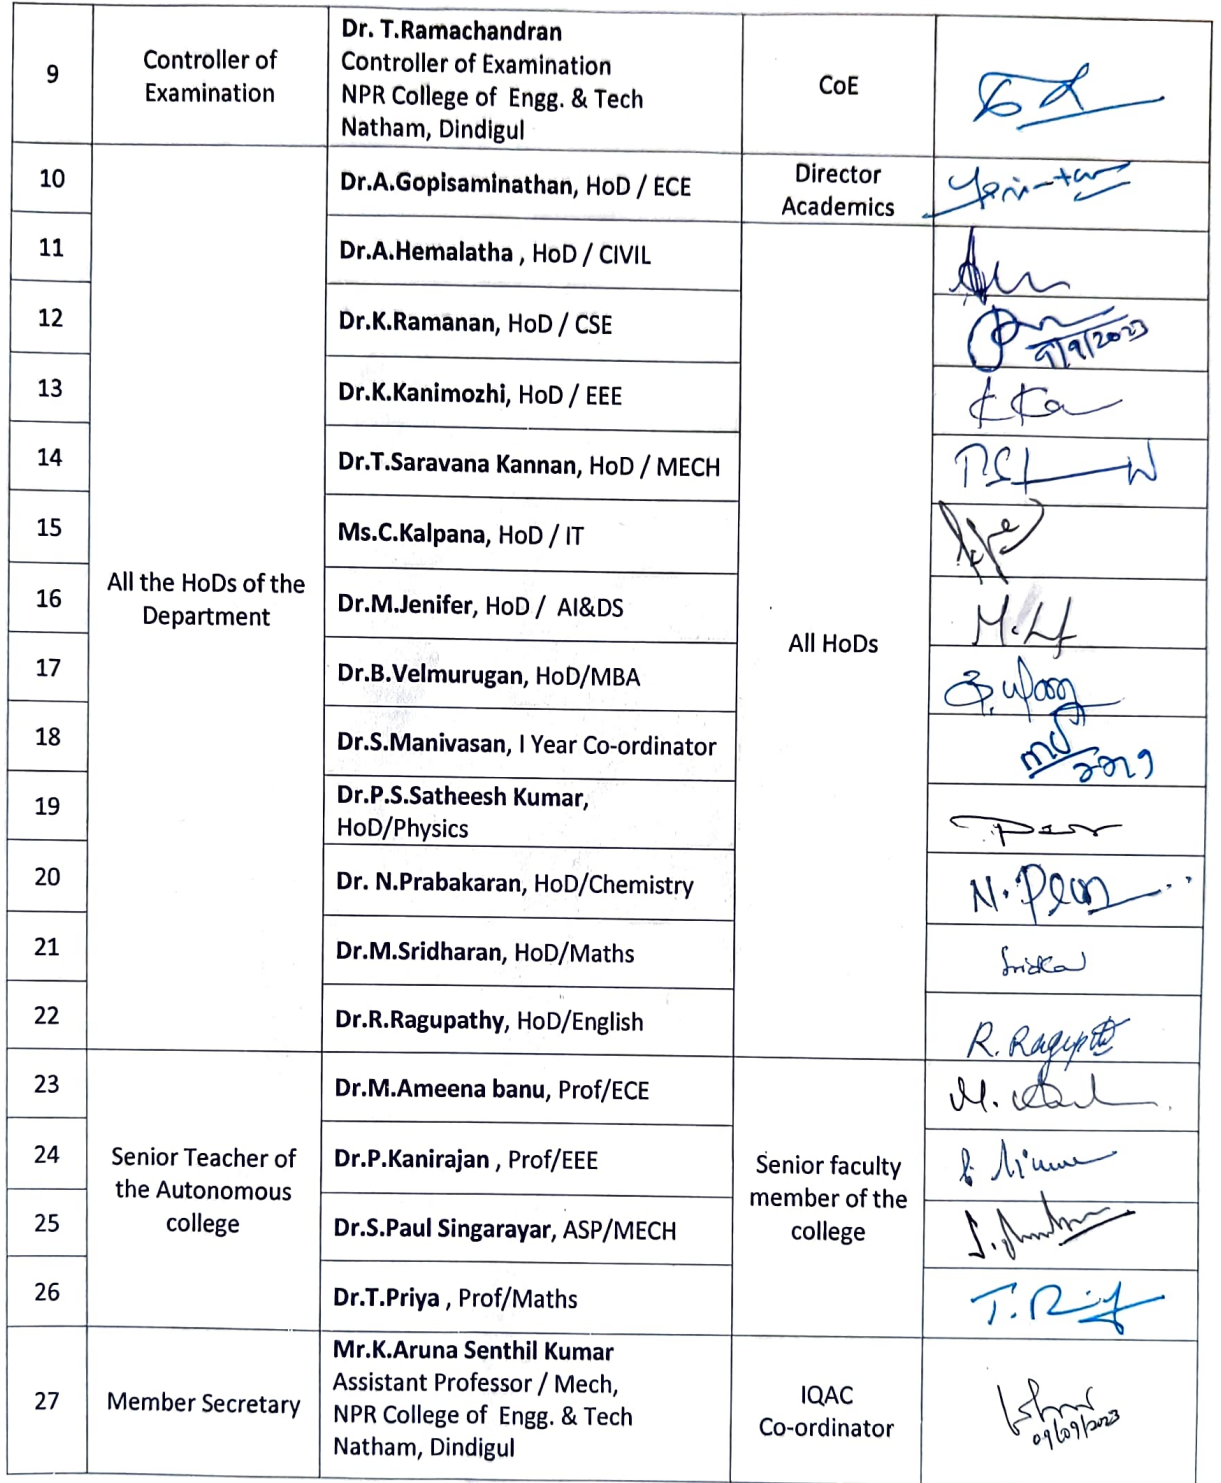 9
Controller of
Examination
Dr. T.Ramachandran
Controller of Examination
NPR College of Engg. & Tech
Natham, Dindigul
CoE
10
Dr.A.Gopisaminathan, HoD / ECE
Director
Academics
11
Dr.A.Hemalatha , HoD / CIVIL
12
Dr.K.Ramanan, HoD / CSE
9/9/2023
13
Dr.K.Kanimozhi, HoD / EEE
14
Dr.T.Saravana Kannan, HoD / MECH
15
Ms.C.Kalpana, HoD / IT
All the HoDs of the
Department
16
Dr.M.Jenifer, HoD / AI&DS
All HoDs
17
Dr.B.Velmurugan, HoD/MBA
18
Dr.S.Manivasan, I Year Co-ordinator
19
Dr.P.S.Satheesh Kumar,
HoD/Physics
20
Dr. N.Prabakaran, HoD/Chemistry
21
Dr.M.Sridharan, HoD/Maths
22
Dr.R.Ragupathy, HoD/English
23
Dr.M.Ameena banu, Prof/ECE
24
Senior Teacher of
the Autonomous
college
Dr.P.Kanirajan , Prof/EEE
Senior faculty
member of the
college
25
Dr.S.Paul Singarayar, ASP/MECH
26
Dr.T.Priya , Prof/Maths
27
Member Secretary
Mr.K.Aruna Senthil Kumar
Assistant Professor / Mech,
NPR College of Engg. & Tech
Natham, Dindigul
IQAC
Co-ordinator
09/09/2023